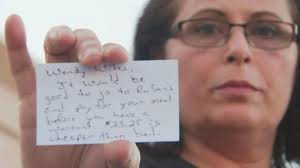 Wendy Wites,
It would be
good to go to Rubens
and pay for your meal
before you have a
warrant. $23.25 is
cheaper than bail.